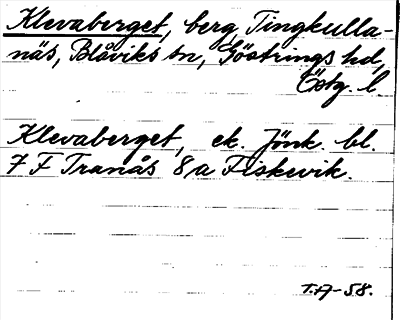 Klevaberget, berg, Tingkulla-
näs, Blåviks sn, Göstrings hd,
Östg. l.
Klevaberget, ek. Jönk. bl.
7 F Tranås 8 a Fiskevik.
T.A-58.